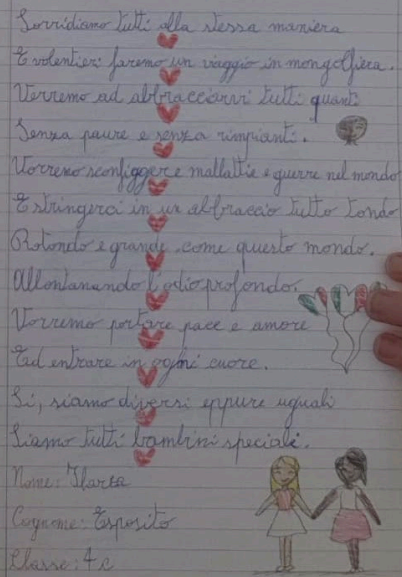 Sorridiamo tutti alla stessa maniera
E volentieri faremo un viaggio in mongolfiera.
Verremo ad abbracciarvi tutti quanti
Senza paure e senza rimpianti.
Vorremo sconfiggere malattie e guerre nel mondo
E stringerci in un abbraccio tutto tondo
Rotondo e grande come questo mondo.
Allontanando l'odio profondo.
Vorremo portare pace e amore
Ed entrare in ogni cuore.
Si, siamo diversi eppure uguali
Siamo tutti bambini speciali.
Nome: Ilaria
Cognome: Esposito
Classe: 4 c